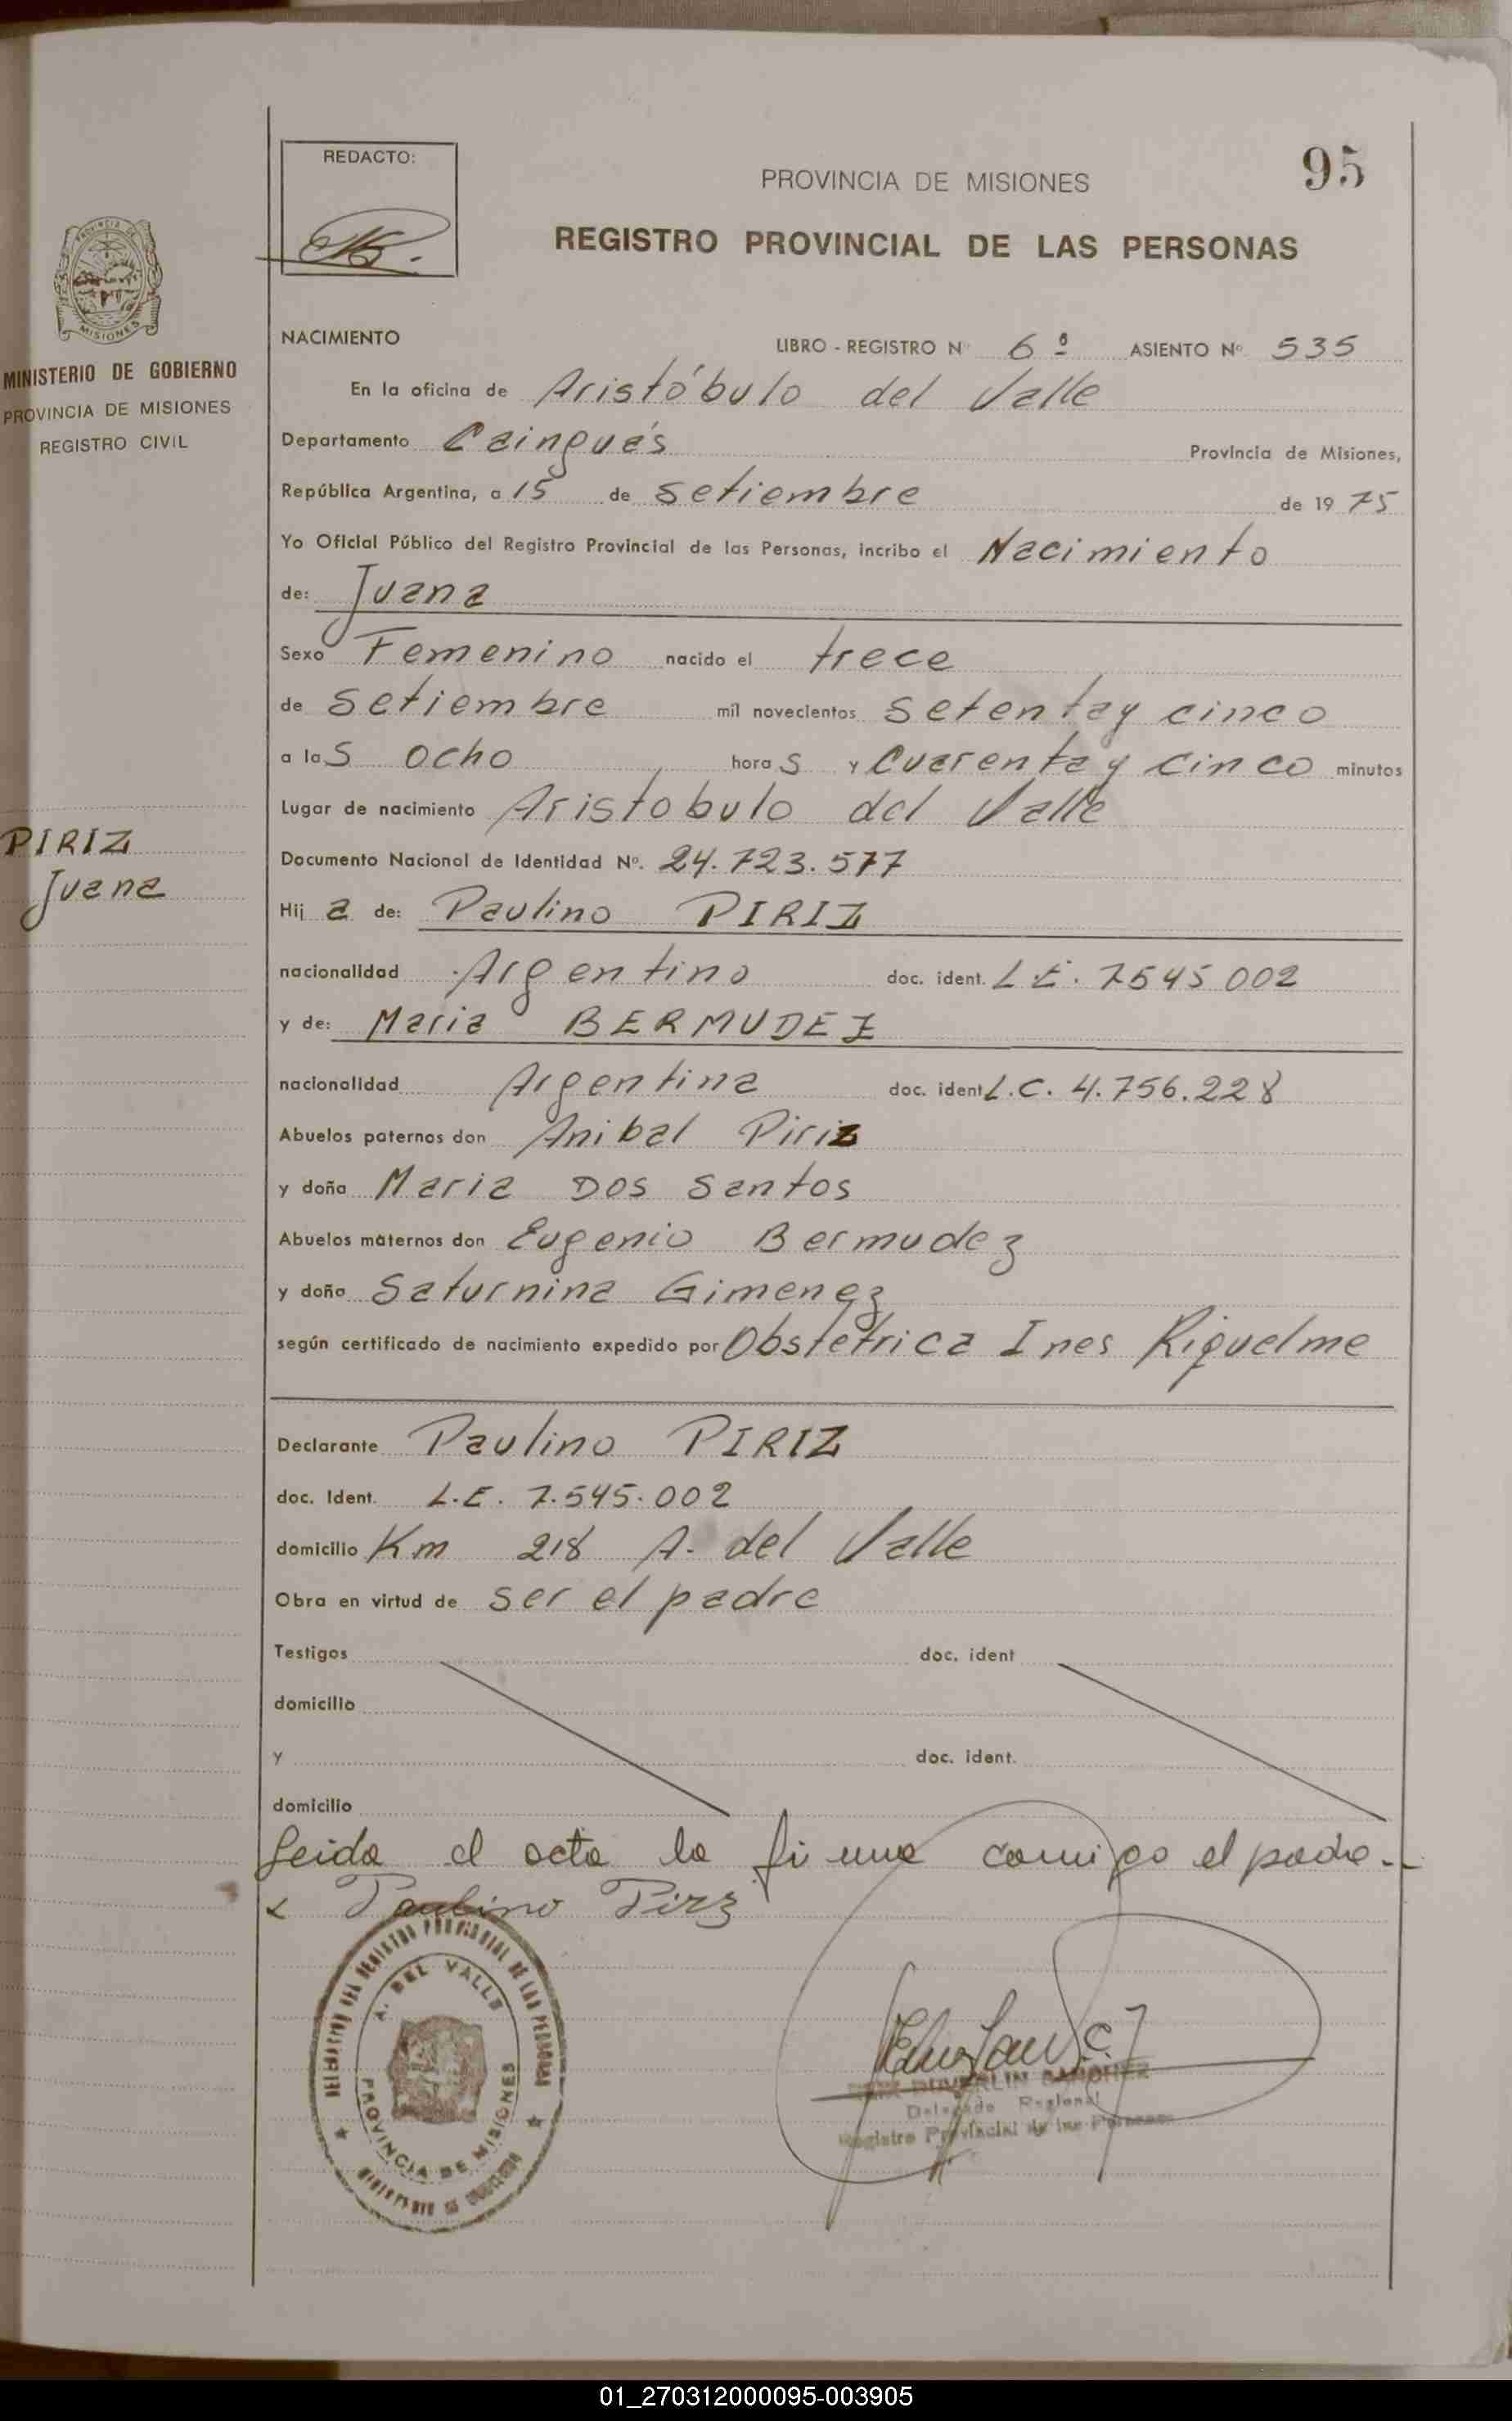 95
REDACTO:
PROVINCIA DE MISIONES
REGISTRO PROVINCIAL DE LAS PERSONAS
MISIONES
MINISTERIO DE GOBIERNO
PROVINCIA DE MISIONES
REGISTRO CIVIL
NACIMIENTO
LIBRO - REGISTRO Nº 6º ASIENTO Nº 535
En la oficina de Aristóbulo del Valle
Departamento Cainguás Provincia de Misiones,
República Argentina, a 15 de setiembre de 19 75
Yo Oficial Público del Registro Provincial de las Personas, incribo el Nacimiento
de: Juana
Sexo Femenino nacido el trece
de setiembre mil novecientos setentay cinco
a las ocho horas y cuarentay cinco minutos
Lugar de nacimiento Aristobulo del Valle
PIRIZ
Juana
Documento Nacional de Identidad Nº. 24.723.577
Hija de: Paulino PIRIZ
nacionalidad Argentino doc. ident. L.E. 7545002
y de: Maria BERMUDEZ
nacionalidad Argentina doc. ident L.C. 4.756.228
Abuelos paternos don Anibal Piriz
y doña Maria Dos Santos
Abuelos maternos don Eugenio Bermudez
y doña Saturnina Gimenez
según certificado de nacimiento expedido por Obstetrica Ines Riquelme
Declarante Paulino PIRIZ
doc. Ident. L.E. 7.545.002
domicilio Km 218 A. del Valle
Obra en virtud de ser el padre
Testigos doc. ident
domicilio
y doc. ident.
domicilio
Leida el acta la firma comigo el padre.-
x Paulino Pirz
DELEGACION DEL REGISTRO PROVINCIAL DE LAS PERSONAS
A. DEL VALLE
PROVINCIA DE MISIONES
SANCHEZ
Delegado Regional
Registro Provincial de las Personas
01_270312000095-003905